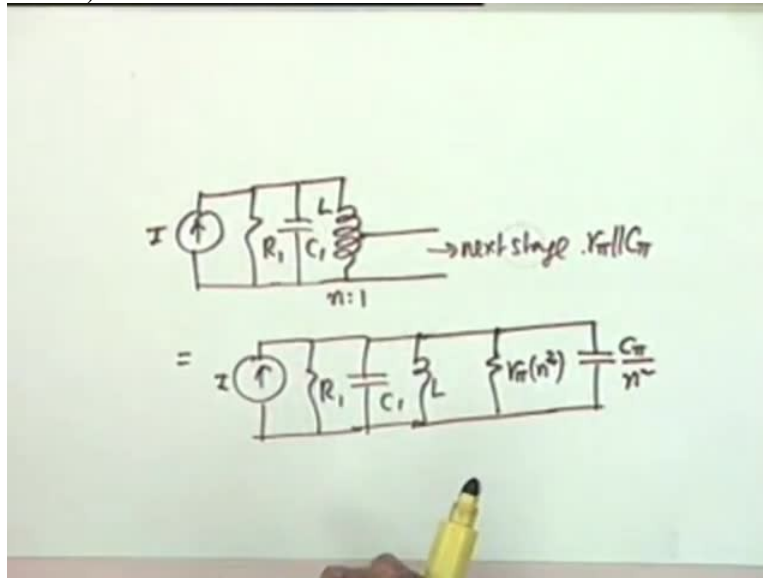 I R₁ C₁ L → next stage . rπ||Cπ
n:1
= I R₁ C₁ L rπ(n²) Cπ/n²